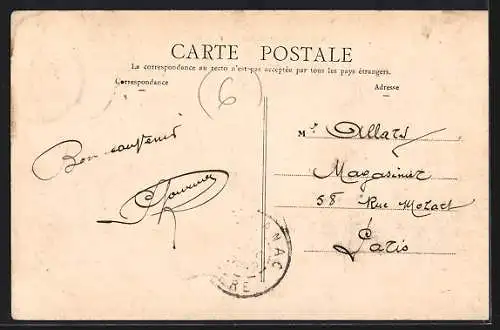 CARTE POSTALE
La correspondance au recto n'est pas acceptée par tous les pays étrangers.
Correspondance
Adresse
(6)
Bon souvenir
Mr Allard
Magasinier
58 Rue Mozart
Paris